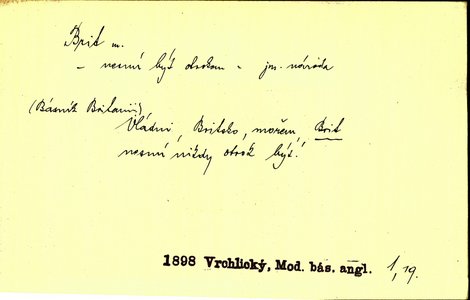 Brit m.
– nesmí být otrokem – jm. národa
(Básník Britanii)
Vládni, Britsko, mořem, Brit
nesmí nikdy otrok být.
1898 Vrchlický, Mod. bás. angl. 1, 19.